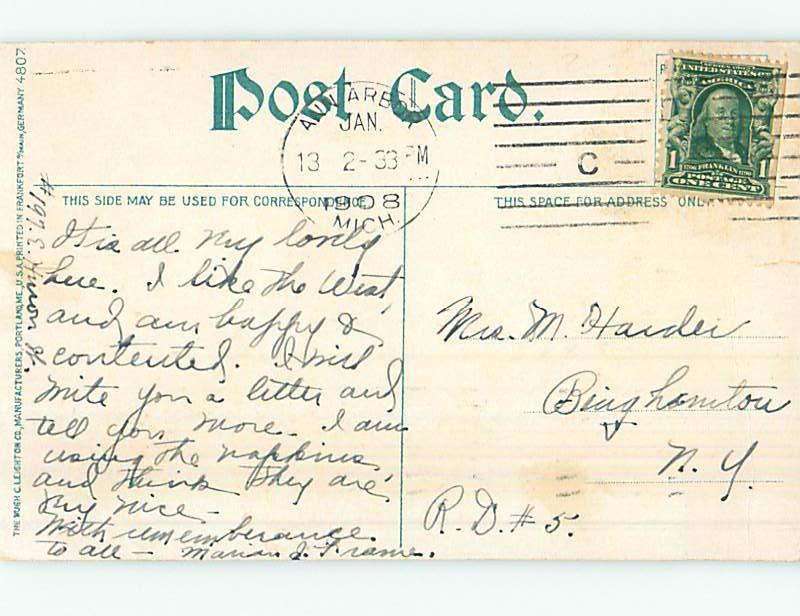 Post Card.
ANN ARBOR
JAN.
13 2-33 PM
1908
MICH.
C
UNITED STATES OF AMERICA
1 FRANKLIN 1
POSTAGE
ONE CENT
THIS SIDE MAY BE USED FOR CORRESPONDENCE
THIS SPACE FOR ADDRESS ONLY
THE HUGH C. LEIGHTON CO., MANUFACTURERS, PORTLAND, ME., U.S.A. PRINTED IN FRANKFORT a/MAIN, GERMANY 4807.
Huron St.
It is all very lovely
here. I like the West,
and am happy &
contented. I will
write you a letter and
tell you more. I am
using the napkins,
and think they are
very nice -
With rememberance
to all - Marian J. Frame.
Mrs. M. Harder
Binghamton
N. Y.
R.D. # 5.